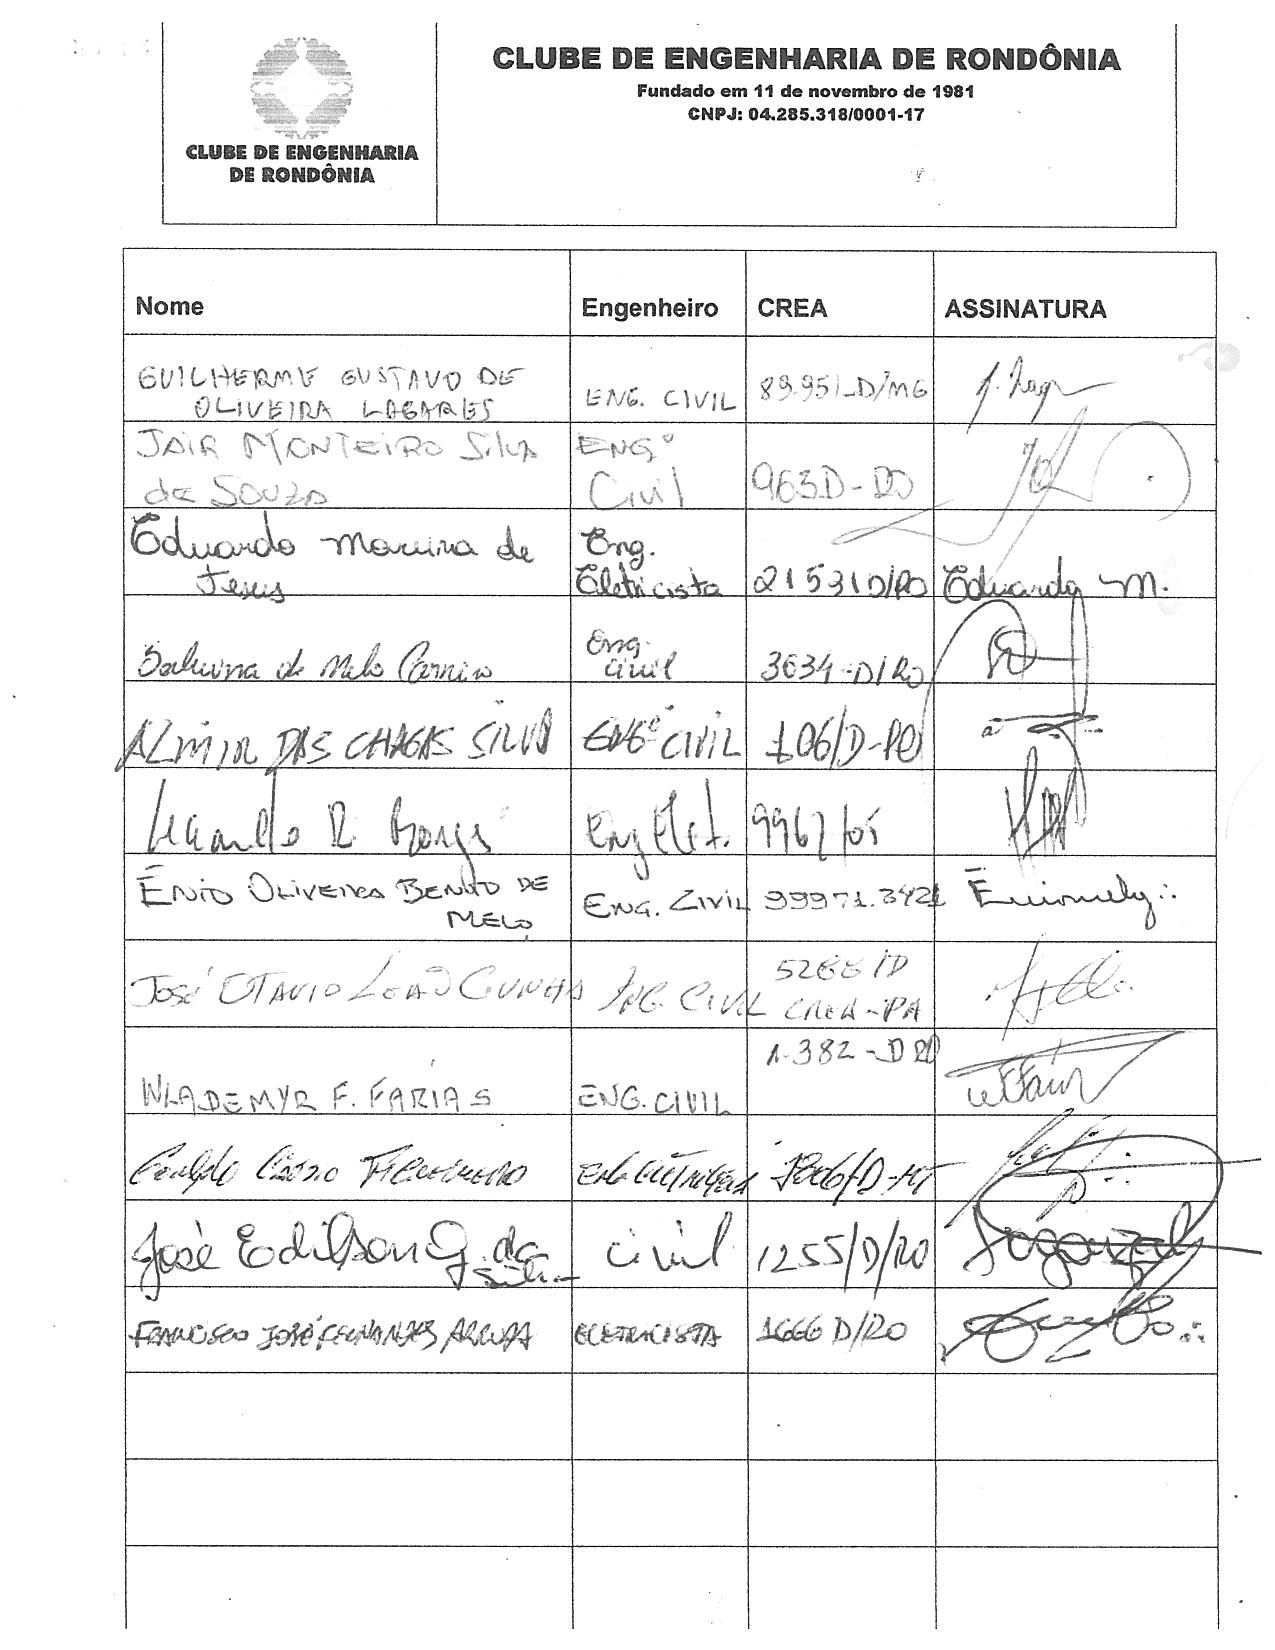 CLUBE DE ENGENHARIA
DE RONDÔNIA
CLUBE DE ENGENHARIA DE RONDÔNIA
Fundado em 11 de novembro de 1981
CNPJ: 04.285.318/0001-17
Nome Engenheiro CREA ASSINATURA
GUILHERME GUSTAVO DE
OLIVEIRA LAGARES ENG. CIVIL 89.951_D/MG
JAIR MONTEIRO SILVA ENGº
de SOUZA Civil 963D-RO
Eduardo Moreira de Eng.
Jesus Eletricista 21531D/RO Eduardo M.
de Melo Eng.
civil 3634-D/RO
ALMIR DAS CHAGAS SILVA ENGº CIVIL 106/D-RO
R. Borges Eng Elet.
ÊNIO OLIVEIRA BENTO DE
MELO ENG. CIVIL 99971.3421
JOSÉ OTAVIO CUNHA ENG. CIVIL 5288/D
CREA-PA
1.382-D RO
WLADEMYR F. FARIAS ENG. CIVIL
José Edilson G. da
Silva civil 1255/D/RO
FRANCISCO JOSÉ FERNANDES ARRUDA ELETRICISTA 1666 D/RO